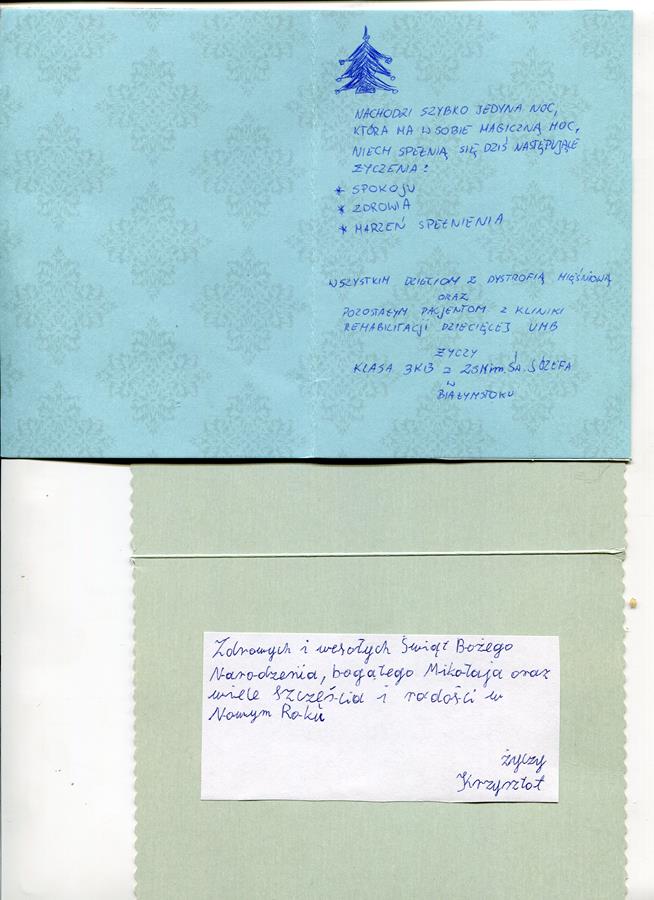 NACHODZI SZYBKO JEDYNA NOC,
KTÓRA MA W SOBIE MAGICZNĄ MOC,
NIECH SPEŁNIĄ SIĘ DZIŚ NASTĘPUJĄCE
ŻYCZENIA:
* SPOKOJU
* ZDROWIA
* MARZEŃ SPEŁNIENIA
WSZYSTKIM DZIECIOM Z DYSTROFIĄ MIĘŚNIOWĄ
ORAZ
POZOSTAŁYM PACJENTOM Z KLINIKI
REHABILITACJI DZIECIĘCEJ UMB
ŻYCZY
KLASA 3KB z ZSM im. Św. JÓZEFA
W
BIAŁYMSTOKU
Zdrowych i wesołych Świąt Bożego
Narodzenia, bogatego Mikołaja oraz
wiele szczęścia i radości w
Nowym Roku
życzy
Krzysztof